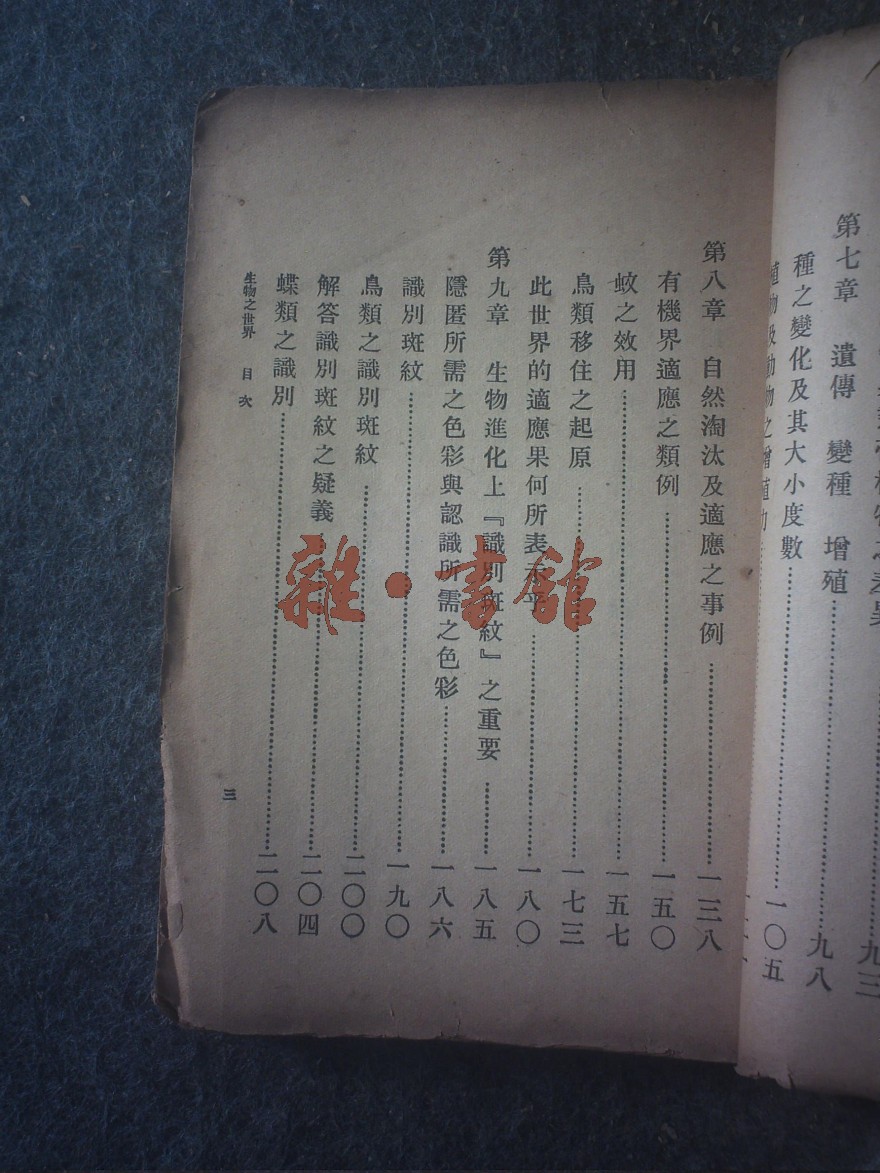 九三
第七章 遺傳 變種 增殖……九八
種之變化及其大小度數……一〇五
第八章 自然淘汰及適應之事例……一三八
有機界適應之類例……一五〇
蚊之效用……一五七
鳥類移住之起原……一七三
此世界的適應果何所表示乎……一八〇
第九章 生物進化上『識別斑紋』之重要……一八五
隱匿所需之色彩與認識所需之色彩……一八六
識別斑紋……一九〇
鳥類之識別斑紋……二〇〇
解答識別斑紋之疑義……二〇四
蝶類之識別……二〇八
生物之世界 目次
三
雜·書館